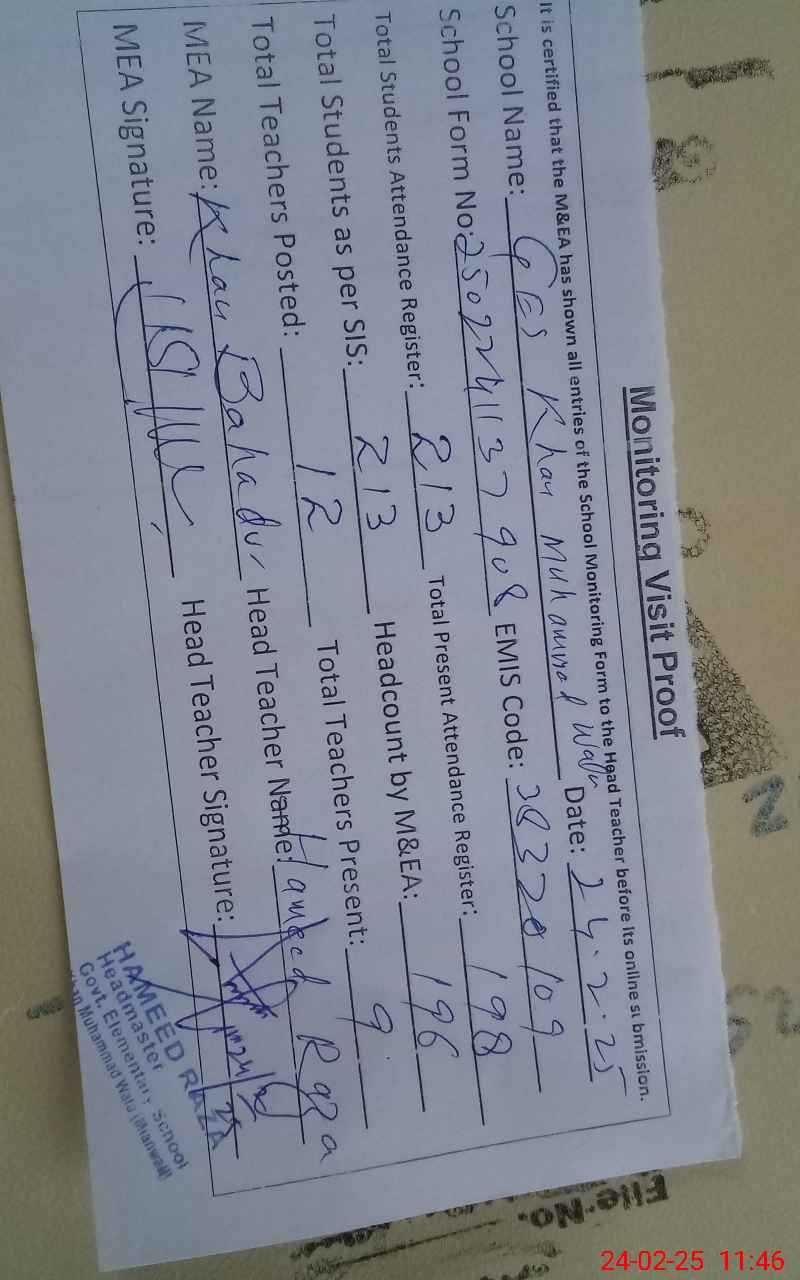 Monitoring Visit Proof
It is certified that the M&EA has shown all entries of the School Monitoring Form to the Head Teacher before its online submission.
School Name: GES Khan Muhammad Wala Date: 24.2.25
School Form No: 2502241137908 EMIS Code: 38320109
Total Students Attendance Register: 213 Total Present Attendance Register: 198
Total Students as per SIS: 213 Headcount by M&EA: 196
Total Teachers Posted: 12 Total Teachers Present: 9
MEA Name: Khan Bahadur Head Teacher Name: Hameed Raza
MEA Signature: Head Teacher Signature:
HAMEED RAZA
Headmaster
Govt. Elementary School
Khan Muhammad Wala (Mianwali)
File No.
24-02-25 11:46